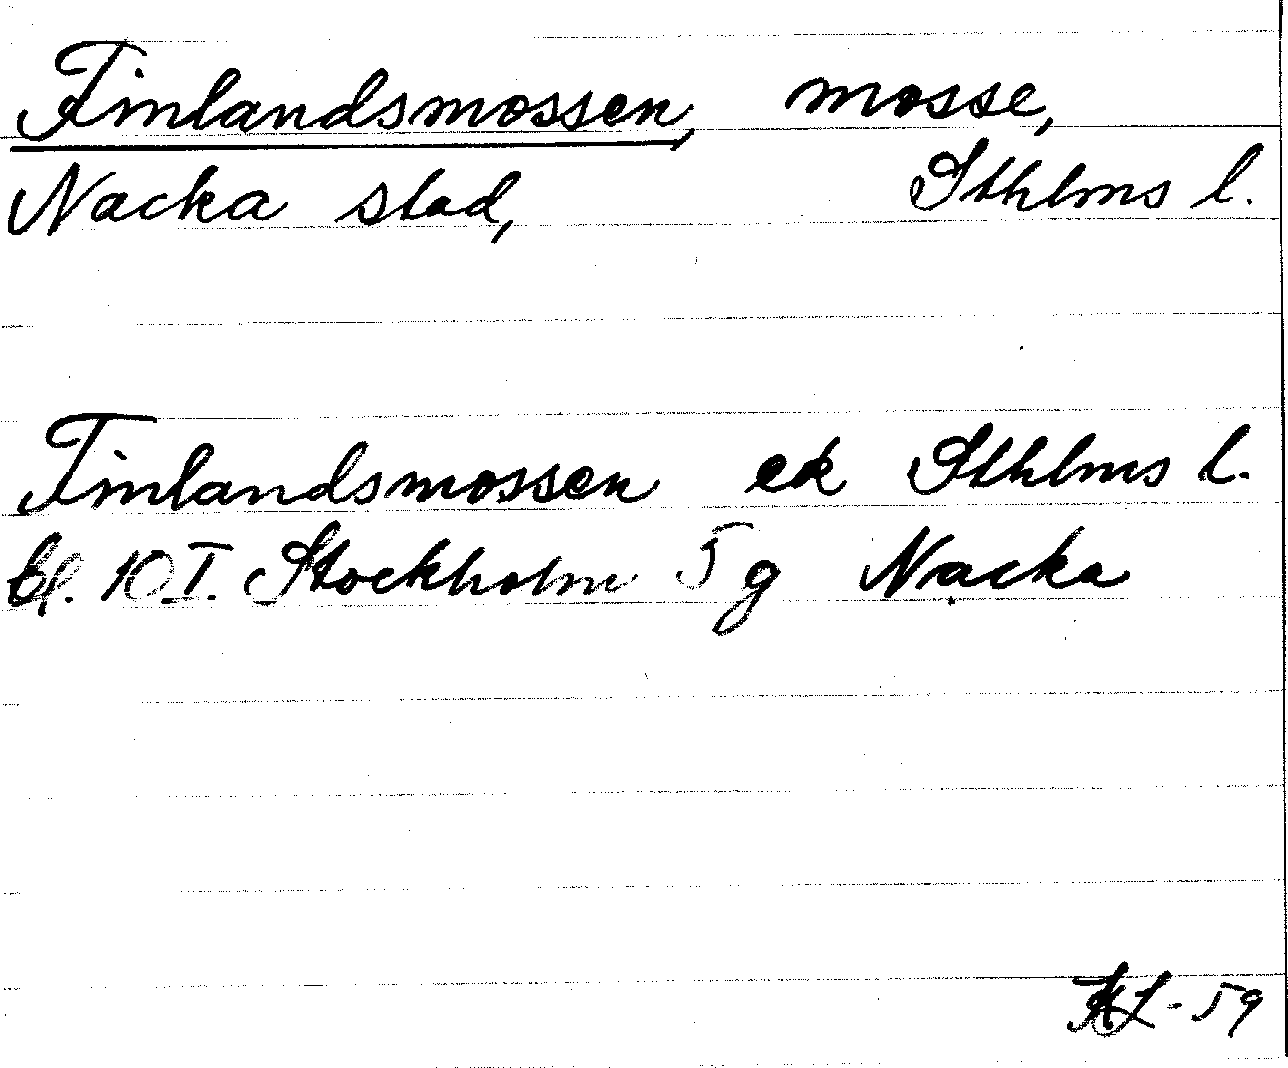 Finlandsmossen, mosse,
Nacka stad, Sthlms l.
Finlandsmossen ek Sthlms l.
bl. 10 I. Stockholm 5 g Nacka
-59